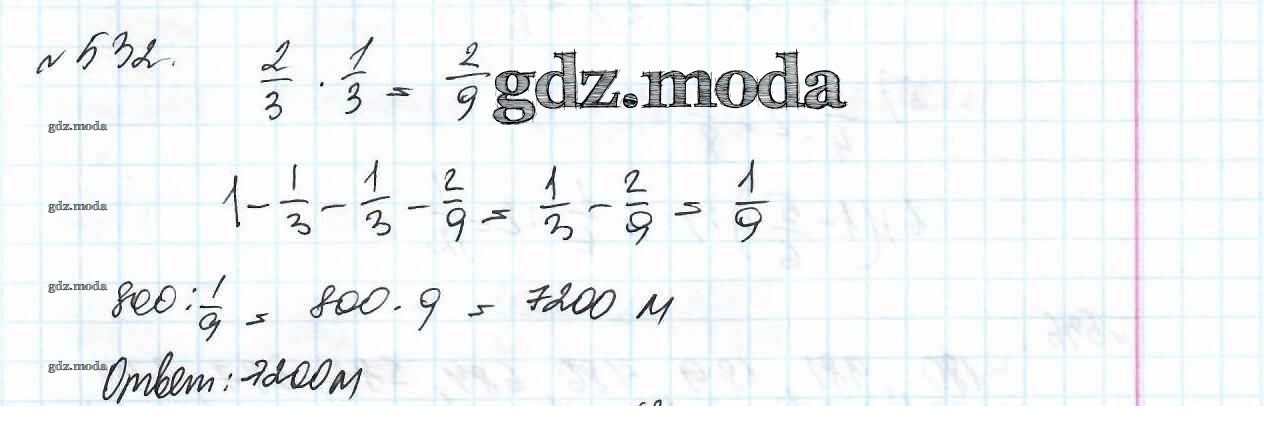 № 532. 2/3 · 1/3 = 2/9 gdz.moda
gdz.moda
gdz.moda 1 - 1/3 - 1/3 - 2/9 = 1/3 - 2/9 = 1/9
gdz.moda 800 : 1/9 = 800 · 9 = 7200 м
gdz.moda Ответ: 7200 м